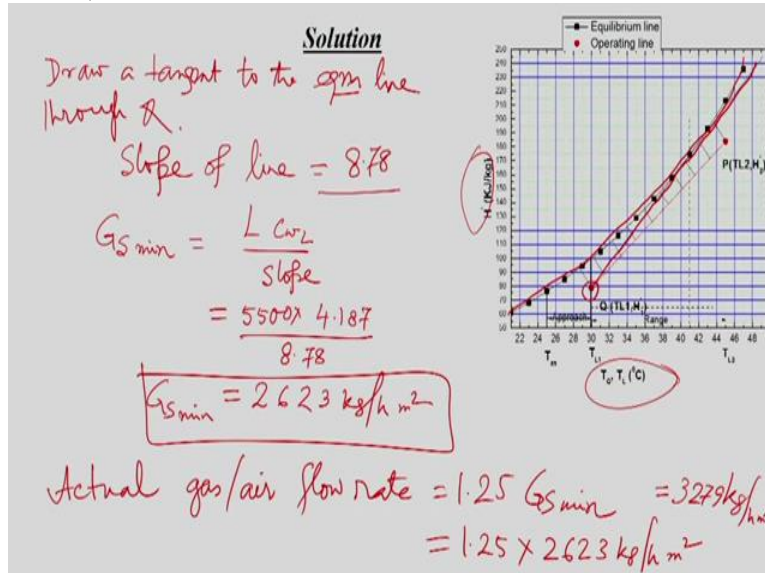 Solution
Draw a tangent to the eqm line
through Q.
Slope of line = 8.78
G_S min = L C_WL / slope
= 5500 × 4.187 / 8.78
G_S min = 2623 kg/h m²
Actual gas/air flow rate = 1.25 G_S min = 3279 kg/h m²
= 1.25 × 2623 kg/h m²
Equilibrium line
Operating line
H' (KJ/kg)
250
240
230
220
210
200
190
180
170
160
150
140
130
120
110
100
90
80
70
60
50
P(TL2,H'
Q (TL1,H'
Approach
Range
21 22 24 26 28 30 32 34 36 38 40 42 44 46 48
T_L1 T_L2
T_G, T_L (°C)